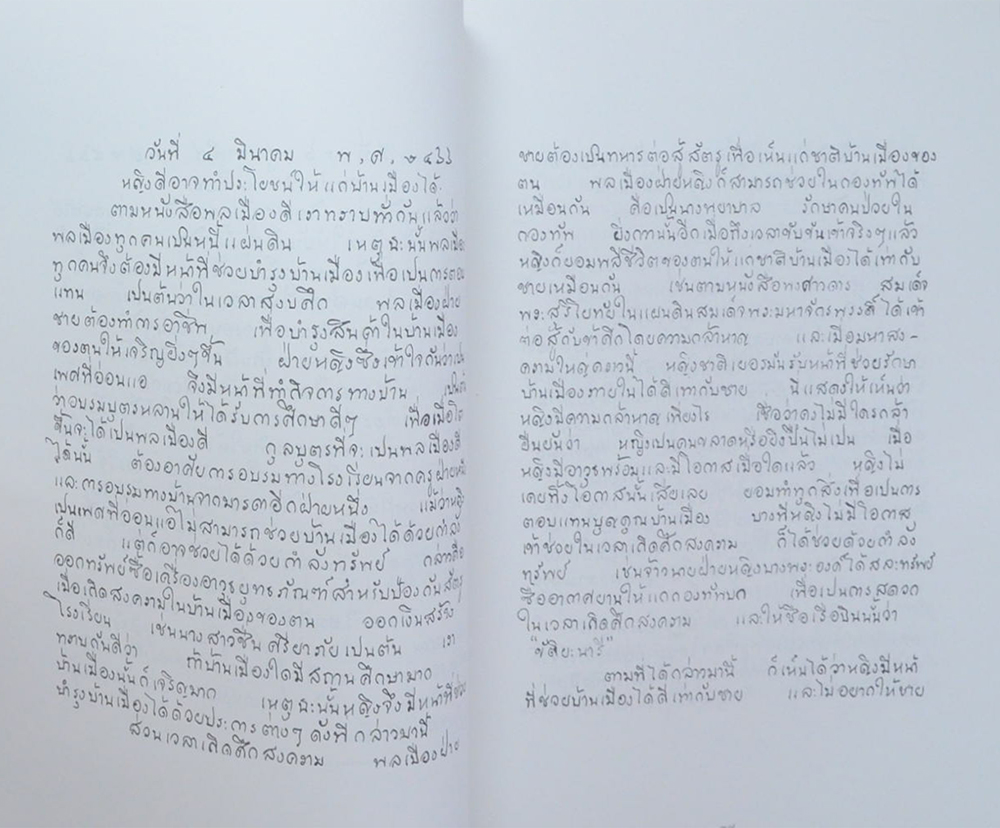 วันที่ ๔ มีนาคม พ,ศ, ๒๔๖๖
หญิงดีอาจทำประโยชน์ให้แก่บ้านเมืองได้
ตามหนังสือพลเมืองดีเราทราบทั่วกันแล้วว่า
พลเมืองทุกคนเป็นหนี้แผ่นดิน เหตุฉะนั้นพลเมือง
ทุกคนจึงต้องมีหน้าที่ช่วยบำรุงบ้านเมืองเพื่อเป็นการตอบ
แทน เป็นต้นว่าในเวลาสงบศึก พลเมืองฝ่าย
ชายต้องทำการอาชีพ เพื่อบำรุงสินค้าในบ้านเมือง
ของตนให้เจริญยิ่งๆขึ้น ฝ่ายหญิงซึ่งเข้าใจกันว่าเป็น
เพศที่อ่อนแอ จึงมีหน้าที่ทำกิจการทางบ้าน เป็นต้น
ว่าอบรมบุตรหลานให้ได้รับการศึกษาดีๆ เพื่อเมื่อโต
ขึ้นจะได้เป็นพลเมืองดี กุลบุตรที่จะเป็นพลเมืองดี
ได้นั้น ต้องอาศัยการอบรมทางโรงเรียนจากครูฝ่ายหนึ่ง
และการอบรมทางบ้านจากมารดาอีกฝ่ายหนึ่ง แม้ว่าหญิง
เป็นเพศที่อ่อนแอไม่สามารถช่วยบ้านเมืองได้ด้วยกำลัง
ก็ดี แต่ก็อาจช่วยได้ด้วยกำลังทรัพย์ กล่าวคือ
ออกทรัพย์ซื้อเครื่องอาวุธยุทธภัณฑ์สำหรับป้องกันสัตรู
เมื่อเกิดสงครามในบ้านเมืองของตน ออกเงินสร้าง
โรงเรียน เช่นนางสาวชื่น ศรียาภัยเป็นต้น เรา
ทราบกันดีว่า ถ้าบ้านเมืองใดมีสถานศึกษามาก
บ้านเมืองนั้นก็เจริญมาก เหตุฉะนั้นหญิงจึงมีหน้าที่ช่วย
บำรุงบ้านเมืองได้ด้วยประการต่างๆ ดังที่กล่าวมานี้
ส่วนเวลาเกิดศึกสงคราม พลเมืองฝ่าย
ชายต้องเป็นทหารต่อสู้สัตรูเพื่อเห็นแก่ชาติบ้านเมืองของ
ตน พลเมืองฝ่ายหญิงก็สามารถช่วยในกองทัพได้
เหมือนกัน คือเป็นนางพยาบาล รักษาคนป่วยใน
กองทัพ ยิ่งกว่านั้นอีกเมื่อถึงเวลาขับขันเข้าจริงๆแล้ว
หญิงก็ยอมพลีชีวิตของตนให้แก่ชาติบ้านเมืองได้เท่ากับ
ชายเหมือนกัน เช่นตามหนังสือพงศาวดาร สมเด็จ
พระสุริโยทัยในแผ่นดินสมเด็จพระมหาจักรพรรดิ์ได้เข้า
ต่อสู้กับข้าศึกโดยความกล้าหาญ และเมื่อมหาสง-
ครามใหญ่คราวนี้ หญิงชาติเยอรมันรับหน้าที่ช่วยรักษา
บ้านเมืองภายในได้ดีเท่ากับชาย นี่แสดงให้เห็นว่า
หญิงมีความกล้าหาญเพียงไร เชื่อว่าคงไม่มีใครกล้า
ยืนยันว่า หญิงเป็นคนขลาดหรือยิงปืนไม่เป็น เมื่อ
หญิงมีอาวุธพร้อมและมีโอกาสเมื่อใดแล้ว หญิงไม่
เคยทิ้งโอกาสนั้นเสียเลย ยอมทำทุกสิ่งเพื่อเป็นการ
ตอบแทนบุญคุณบ้านเมือง บางทีหญิงไม่มีโอกาส
เข้าช่วยในเวลาเกิดศึกสงคราม ก็ได้ช่วยด้วยกำลัง
ทรัพย์ เช่นเจ้านายฝ่ายหญิงบางพระองค์ได้สละทรัพย์
ซื้ออากาศยานให้แก่กองทัพบก เพื่อเป็นการสดวก
ในเวลาเกิดศึกสงคราม และให้ชื่อเรือบินนั้นว่า
"ขัติยะนารี"
ตามที่ได้กล่าวมานี้ ก็เห็นได้ว่าหญิงมีหน้า
ที่ช่วยบ้านเมืองได้ดีเท่ากับชาย และไม่อยากให้ชาย